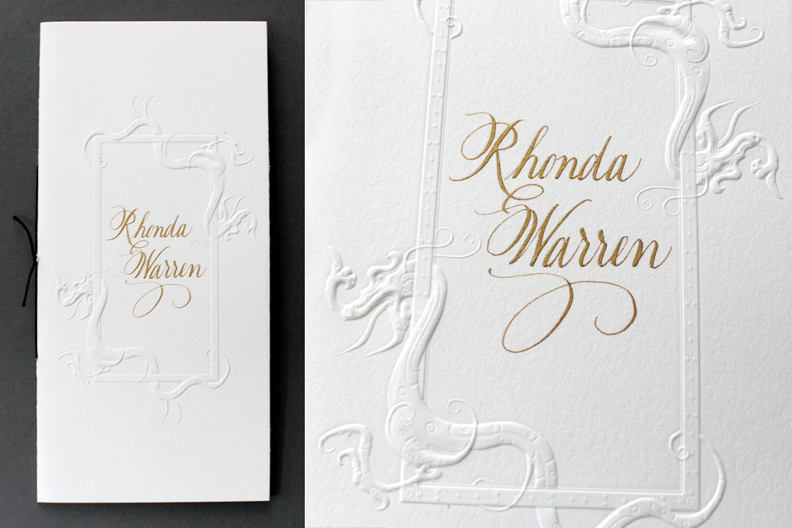 Rhonda
&
Warren
Rhonda
&
Warren